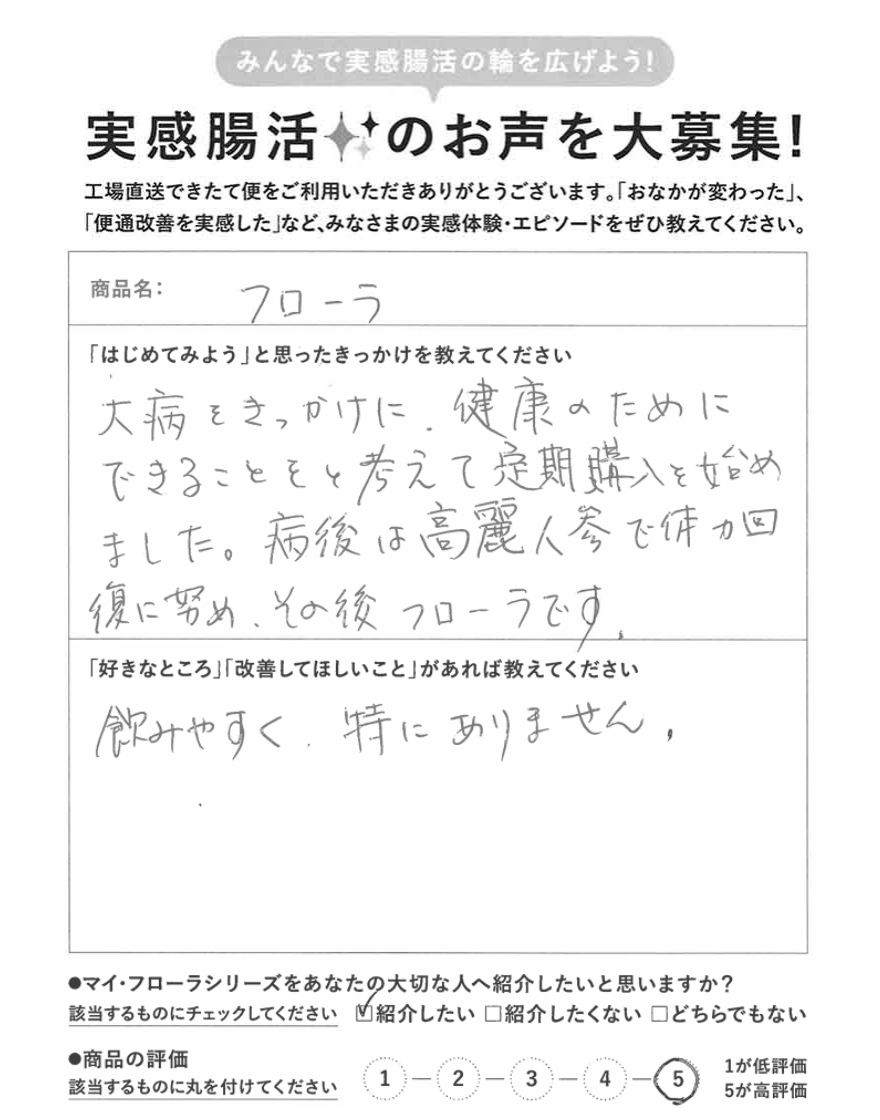 みんなで実感腸活の輪を広げよう!
実感腸活のお声を大募集!
工場直送できたて便をご利用いただきありがとうございます。「おなかが変わった」、
「便通改善を実感した」など、みなさまの実感体験・エピソードをぜひ教えてください。
商品名: フローラ
「はじめてみよう」と思ったきっかけを教えてください
大病をきっかけに、健康のために
できることをと考えて定期購入を始め
ました。病後は高麗人参で体力回
復に努め、その後フローラです。
「好きなところ」「改善してほしいこと」があれば教えてください
飲みやすく、特にありません。
●マイ・フローラシリーズをあなたの大切な人へ紹介したいと思いますか?
該当するものにチェックしてください ☑紹介したい □紹介したくない □どちらでもない
●商品の評価
該当するものに丸を付けてください 1 — 2 — 3 — 4 — 5
1が低評価
5が高評価